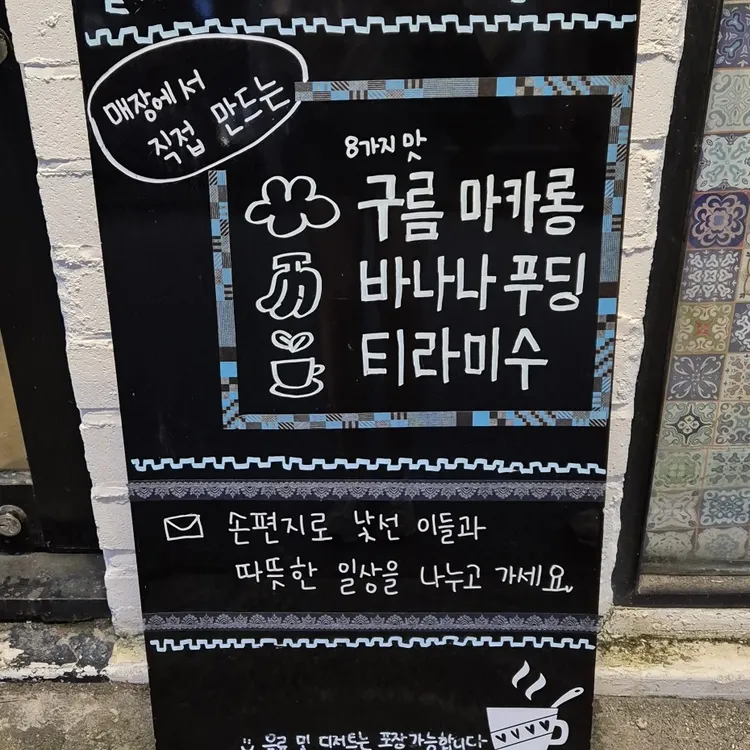 매장에서
직접 만드는
8가지 맛
구름 마카롱
바나나 푸딩
티라미수
손편지로 낯선 이들과
따뜻한 일상을 나누고 가세요.
음료 및 디저트는 포장 가능합니다